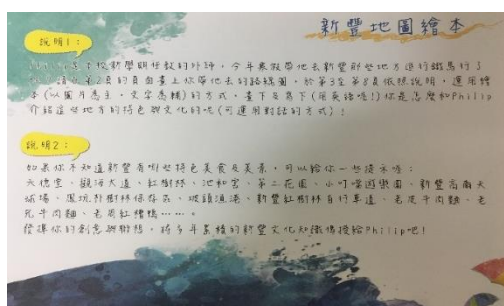 新豐地圖繪本
說明1：
Philip是本校新聘明仔餃的外師，今年寒假帶他去新豐那些地方進行鐵馬行了
請在第2頁的頁面畫上你帶他去的路線圖，於第3至第8頁依照說明，運用繪
本(以圖片為主，文字為輔)的方式，畫下及寫下(用英語喔!)你是怎麼和Philip
介紹這些地方的特色與文化的呢(可運用對話的方式)！
說明2：
如果你不知道新豐有哪些特色美食及美景，可以給你一些提示喔：
天德堂、觀海大道、紅樹林、池和宮、第二花園、小叮噹遊樂園、新豐高爾夫
球場、鳳坑朴樹林保存區、坡頭漁港、新豐紅樹林自行車道、老皮牛肉麵、老
芋牛肉麵、老張紅糟鴨……。
發揮你的創意與聯想，將多年累積的新豐文化知識傳授給Philip吧！